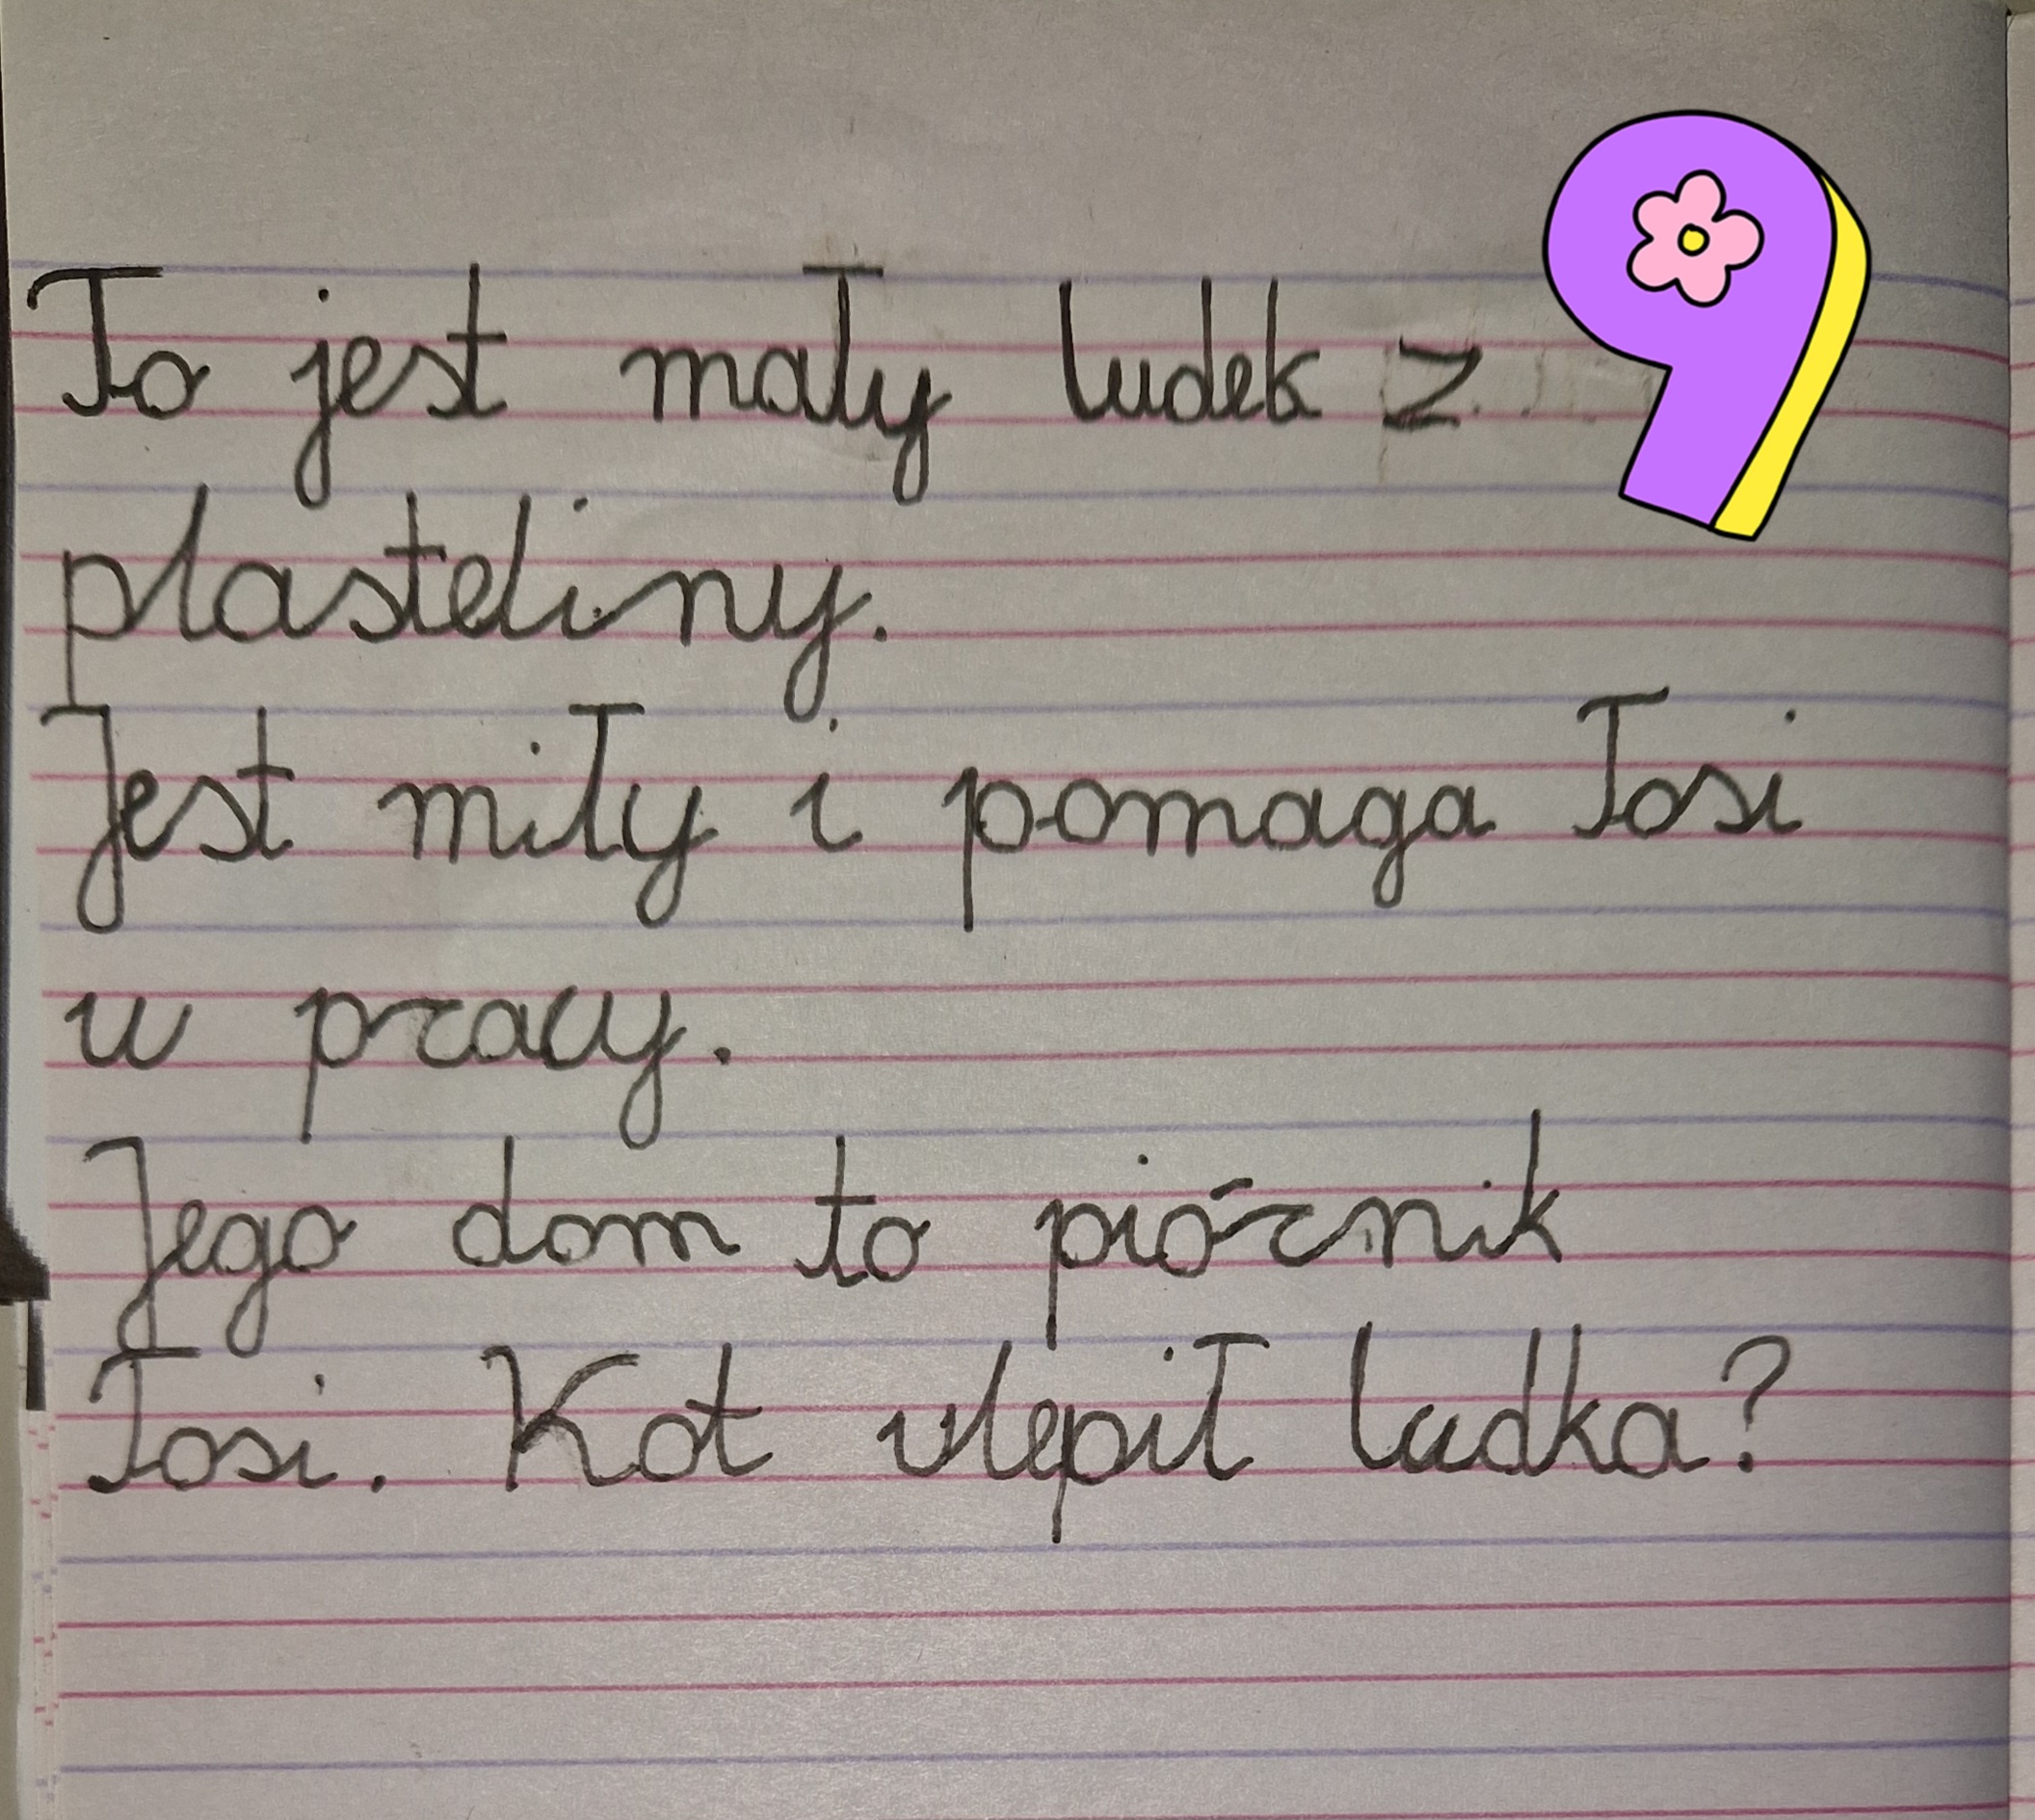 To jest mały ludek z
9
plasteliny.
Jest miły i pomaga Tosi
w pracy.
Jego dom to piórnik
Tosi. Kot ulepił ludka?